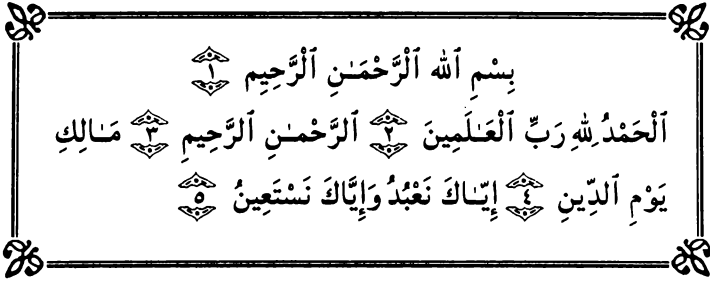 بِسْمِ ٱللهِ ٱلْرَّحْمَـٰنِ ٱلْرَّحِيمِ ١
ٱلْحَمْدُ لِلهِ رَبِّ ٱلْعَـٰلَمِينَ ٢ ٱلرَّحْمـٰنِ ٱلرَّحِيمِ ٣ مَـٰالِكِ
يَوْمِ ٱلدِّينِ ٤ إِيَّـاكَ نَعْبُدُ وَإِيَّاكَ نَسْتَعِينُ ٥